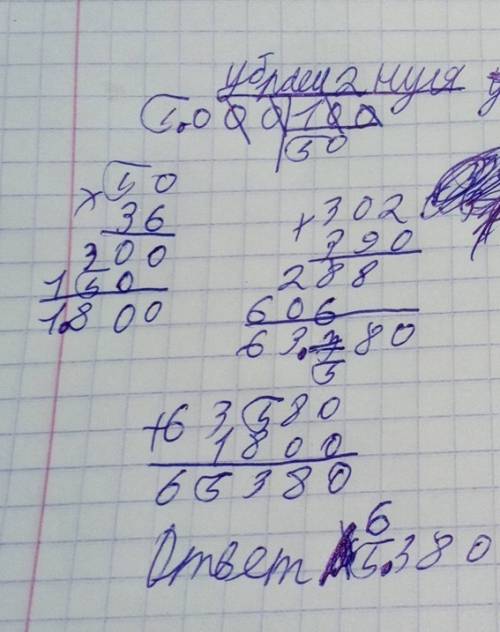 убрали 2 нуля
5.000 | 100
50
× 50
36
300
150
1.800
× 302
290
288
606
63.580
+ 63580
1800
65380
Ответ 65.380